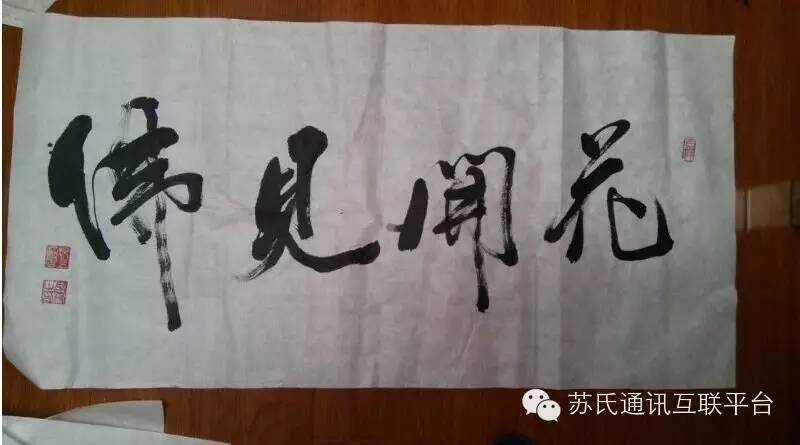 花開見佛
苏氏通讯互联平台